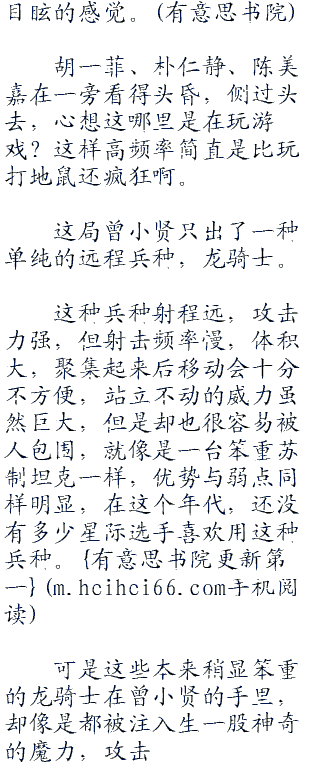 目眩的感觉。(有意思书院)
胡一菲、朴仁静、陈美
嘉在一旁看得头昏，侧过头
去，心想这哪里是在玩游
戏？这样高频率简直是比玩
打地鼠还疯狂啊。
这局曾小贤只出了一种
单纯的远程兵种，龙骑士。
这种兵种射程远，攻击
力强，但射击频率慢，体积
大，聚集起来后移动会十分
不方便，站立不动的威力虽
然巨大，但是却也很容易被
人包围，就像是一台笨重苏
制坦克一样，优势与弱点同
样明显，在这个年代，还没
有多少星际选手喜欢用这种
兵种。{有意思书院更新第
一}(m.hcihci66.com手机阅
读)
可是这些本来稍显笨重
的龙骑士在曾小贤的手里，
却像是都被注入生一股神奇
的魔力，攻击